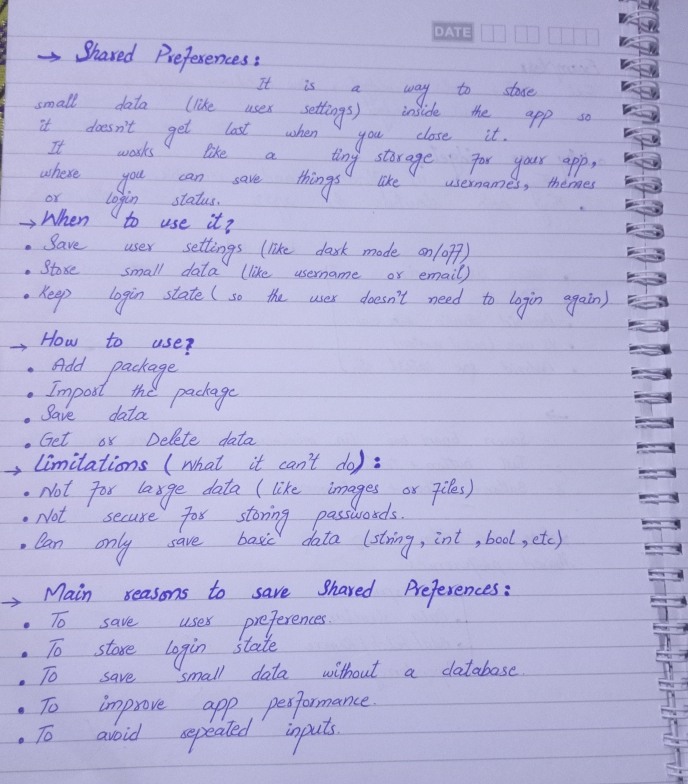 DATE
→ Shared Preferences:
It is a way to store
small data (like user settings) inside the app so
it doesn't get lost when you close it.
It works like a tiny storage for your app,
where you can save things like usernames, themes
or login status.
→ When to use it?
• Save user settings (like dark mode on/off)
• Store small data (like username or email)
• Keep login state ( so the user doesn't need to login again)
→ How to use?
• Add package
• Import the package
• Save data
• Get or Delete data
→ Limitations ( what it can't do) :
• Not for large data ( like images or files)
• Not secure for storing passwords.
• Can only save basic data (string, int , bool , etc)
→ Main reasons to save Shared Preferences:
• To save user preferences.
• To store login state
• To save small data without a database.
• To improve app performance.
• To avoid repeated inputs.